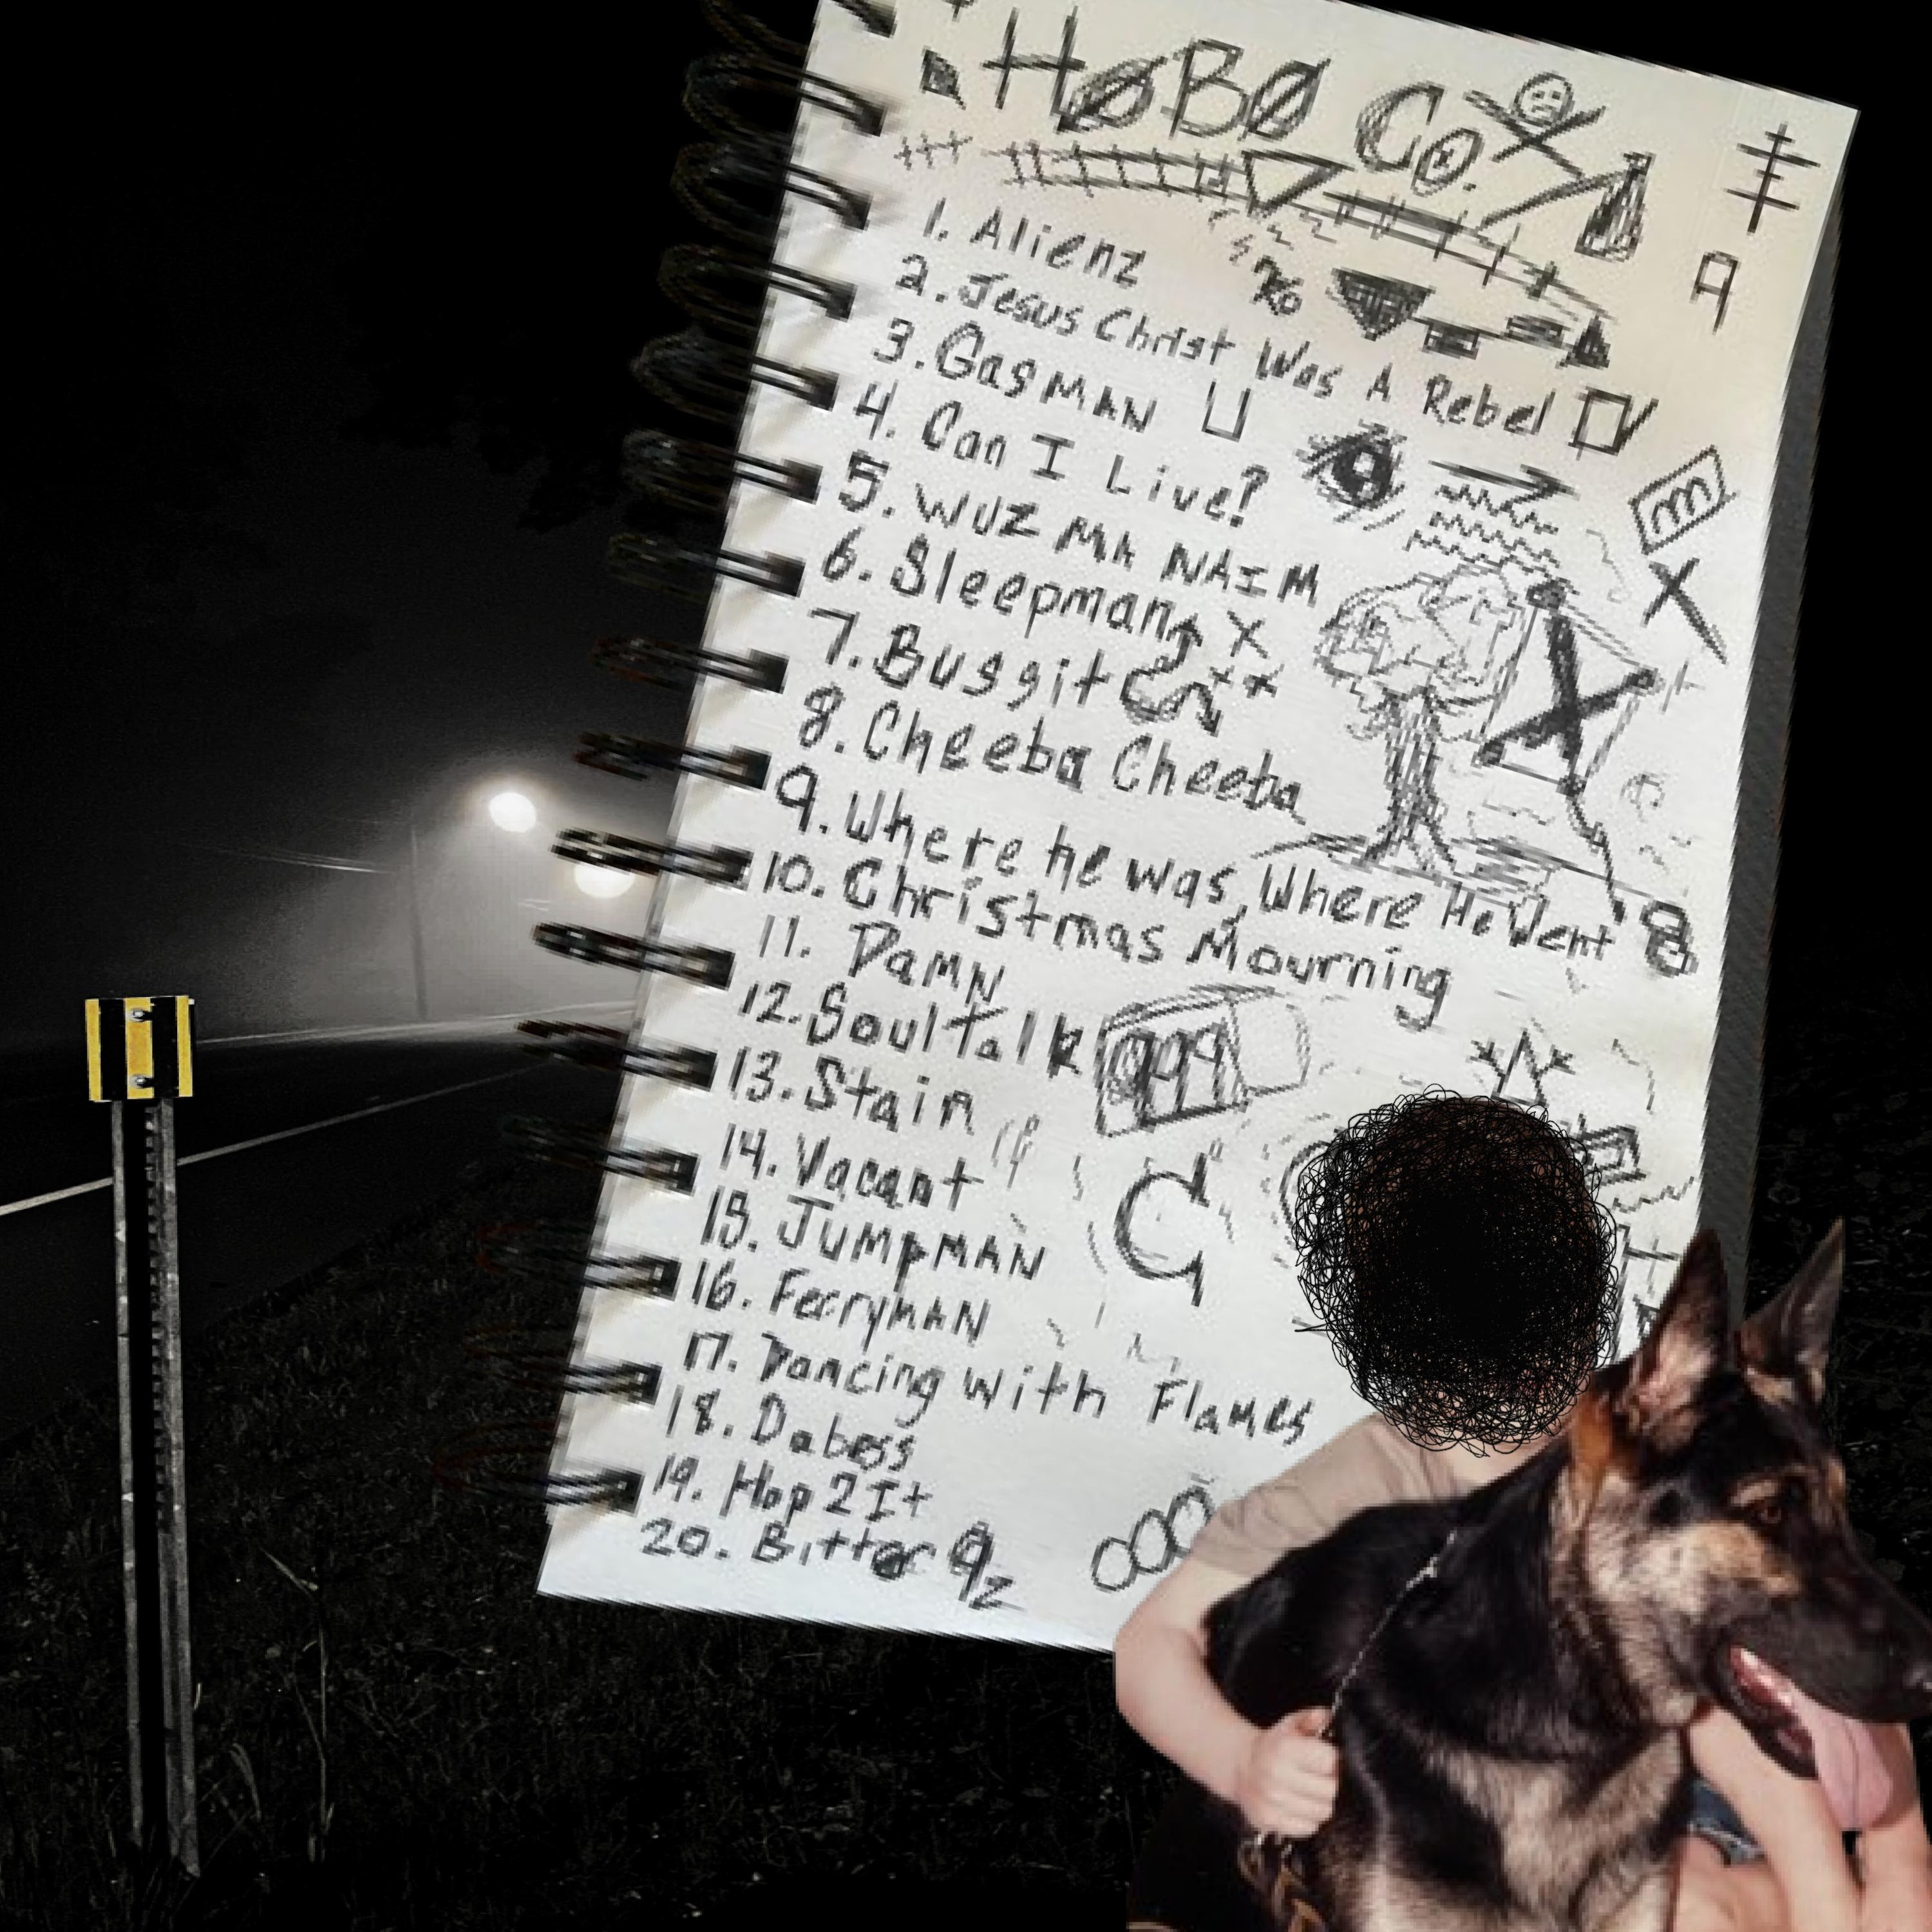 HØBØ CO.
9
1. Alienz
2. Jesus Christ Was A Rebel
3. GasMAN
4. Can I Live?
m
5. WUZ MA NAIM
6. Sleepman
7. Buggit
8. Cheeba Cheeba
9. Where he was, Where He Went
10. Christmas Mourning
11. DaMN
12. Soultalk
13. Stain
14. Vacant
15. JUMpMAN
16. FerryMAN
17. Dancing with Flames
18. Daboss
19. Hop 2 It
20. Bitter